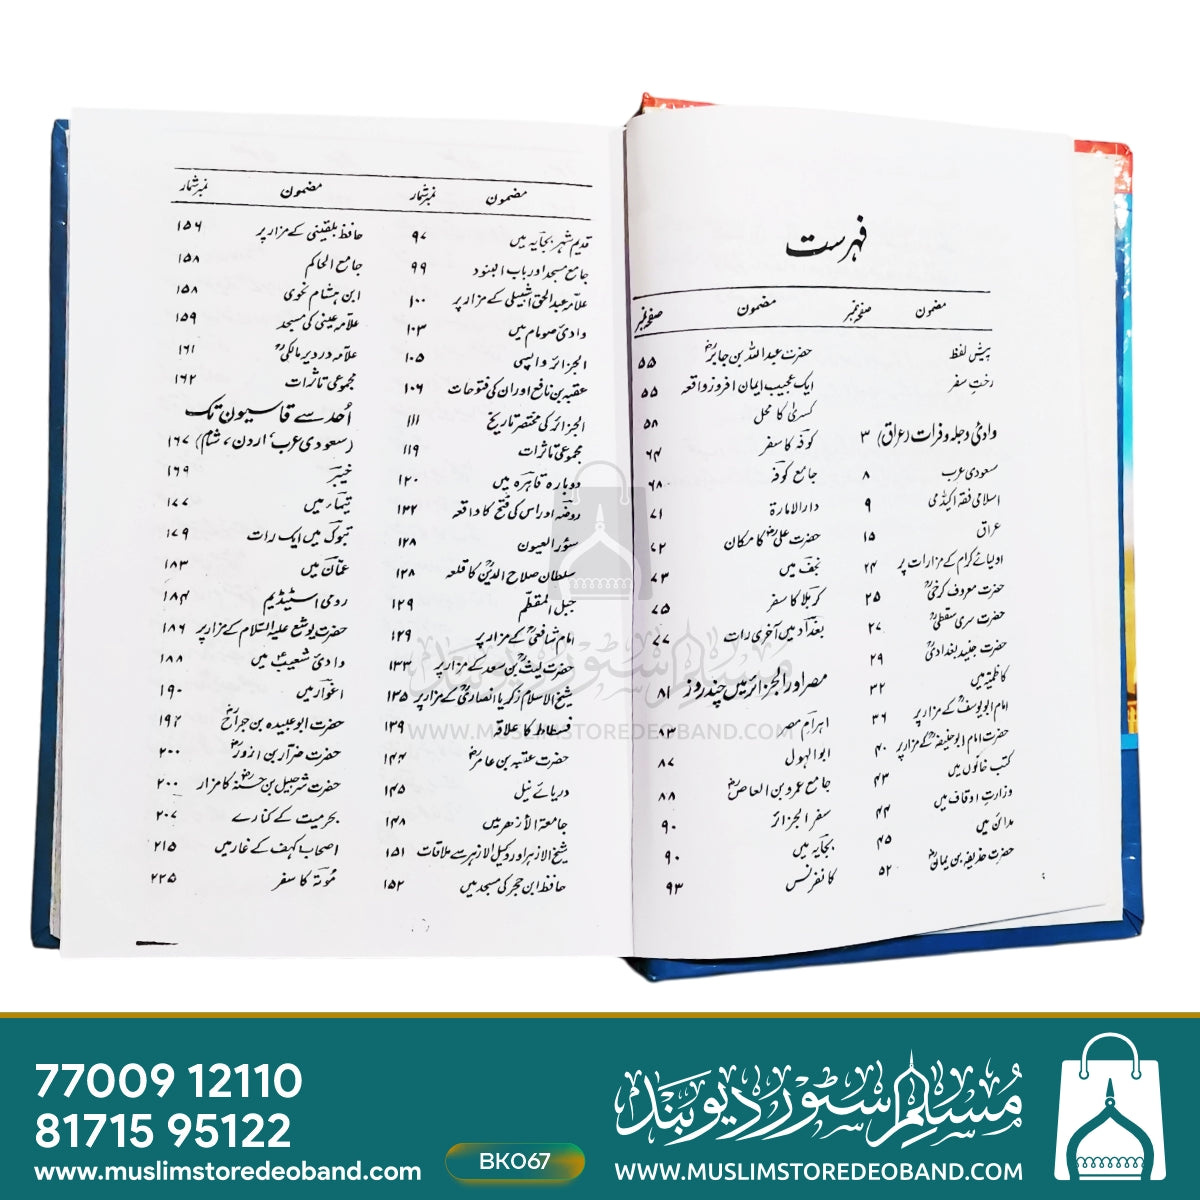 فہرست
مضمون صفحہ نمبر
پیش لفظ
رختِ سفر
وادیٔ دجلہ و فرات (عراق) ۳
سعودی عرب ۸
اسلامی فقہ اکیڈمی ۹
عراق ۱۵
اولیائے کرام کے مزارات پر ۲۴
حضرت معروف کرخیؒ ۲۵
حضرت سری سقطیؒ ۲۷
حضرت جنید بغدادیؒ ۲۹
کاظمیہ میں ۳۲
امام ابو یوسفؒ کے مزار پر ۳۶
حضرت امام ابو حنیفہؒ کے مزار پر ۴۰
کتب خانوں میں ۴۳
وزارتِ اوقاف میں ۴۴
مدائن میں ۴۵
حضرت حذیفہ بن یمانؓ ۵۲
مضمون صفحہ نمبر
حضرت عبداللہ بن جابرؓ ۵۵
ایک عجیب ایمان افروز واقعہ ۵۵
کسریٰ کا محل ۵۸
کوفہ کا سفر ۶۴
جامع کوفہ ۶۸
دار الامارۃ ۷۱
حضرت علیؓ کا مکان ۷۲
نجف میں ۷۳
کربلا کا سفر ۷۵
بغداد میں آخری رات ۷۷
مصر اور الجزائر میں چند روز ۸۱
اہرامِ مصر ۸۳
ابوالہول ۸۷
جامع عمرو بن العاصؓ ۸۸
سفرِ الجزائر ۹۰
بجایہ میں ۹۰
کانفرنس ۹۳
مضمون نمبر شمار
قدیم شہر بجایہ میں ۹۷
جامع مسجد اور باب البنود ۹۹
علامہ عبدالحق اشبیلی کے مزار پر ۱۰۰
وادیٔ صومام میں ۱۰۳
الجزائر واپسی ۱۰۵
عقبہ بن نافع اور ان کی فتوحات ۱۰۶
الجزائر کی مختصر تاریخ ۱۱۱
مجموعی تاثرات ۱۱۹
دوبارہ قاہرہ میں ۱۲۰
روضہ اور اس کی فتح کا واقعہ ۱۲۲
سور العیون ۱۲۸
سلطان صلاح الدینؒ کا قلعہ ۱۲۸
جبل المقطّم ۱۲۹
امام شافعیؒ کے مزار پر ۱۲۹
حضرت لیثؒ بن سعد کے مزار پر ۱۳۳
شیخ الاسلام زکریا انصاریؒ کے مزار پر ۱۳۵
فسطاط کا علاقہ ۱۳۹
حضرت عقبہ بن عامرؓ ۱۴۴
دریائے نیل ۱۴۵
جامعۃ الازھر میں ۱۴۸
شیخ الازہر اور وکیل الازہر سے ملاقات ۱۵۱
حافظ ابن حجر کی مسجد میں ۱۵۲
مضمون نمبر شمار
حافظ بلقینی کے مزار پر ۱۵۶
جامع الحاکم ۱۵۸
ابن ہشام نحوی ۱۵۸
علامہ عینی کی مسجد ۱۵۹
علامہ دردیر مالکیؒ ۱۶۱
مجموعی تاثرات ۱۶۲
اُحد سے قاسیون تک
(سعودی عرب، اردن، شام) ۱۶۷
خیبر ۱۶۹
تیماء میں ۱۷۷
تبوک میں ایک رات ۱۷۹
عمّان میں ۱۸۳
رومی اسٹیڈیم ۱۸۴
حضرت یوشع علیہ السلام کے مزار پر ۱۸۶
وادیٔ شعیبؑ میں ۱۸۸
اغوار میں ۱۹۰
حضرت ابو عبیدہ بن جراحؓ ۱۹۲
حضرت ضرار بن ازورؓ ۲۰۰
حضرت شرحبیل بن حسنہؓ کا مزار ۲۰۰
بحر میت کے کنارے ۲۰۷
اصحاب کہف کے غار میں ۲۱۵
موتہ کا سفر ۲۲۵
مسلم سٹور دیوبند
WWW.MUSLIMSTOREDEOBAND.COM
77009 12110
81715 95122
www.muslimstoredeoband.com
BK067
مسلم سٹور دیوبند
WWW.MUSLIMSTOREDEOBAND.COM